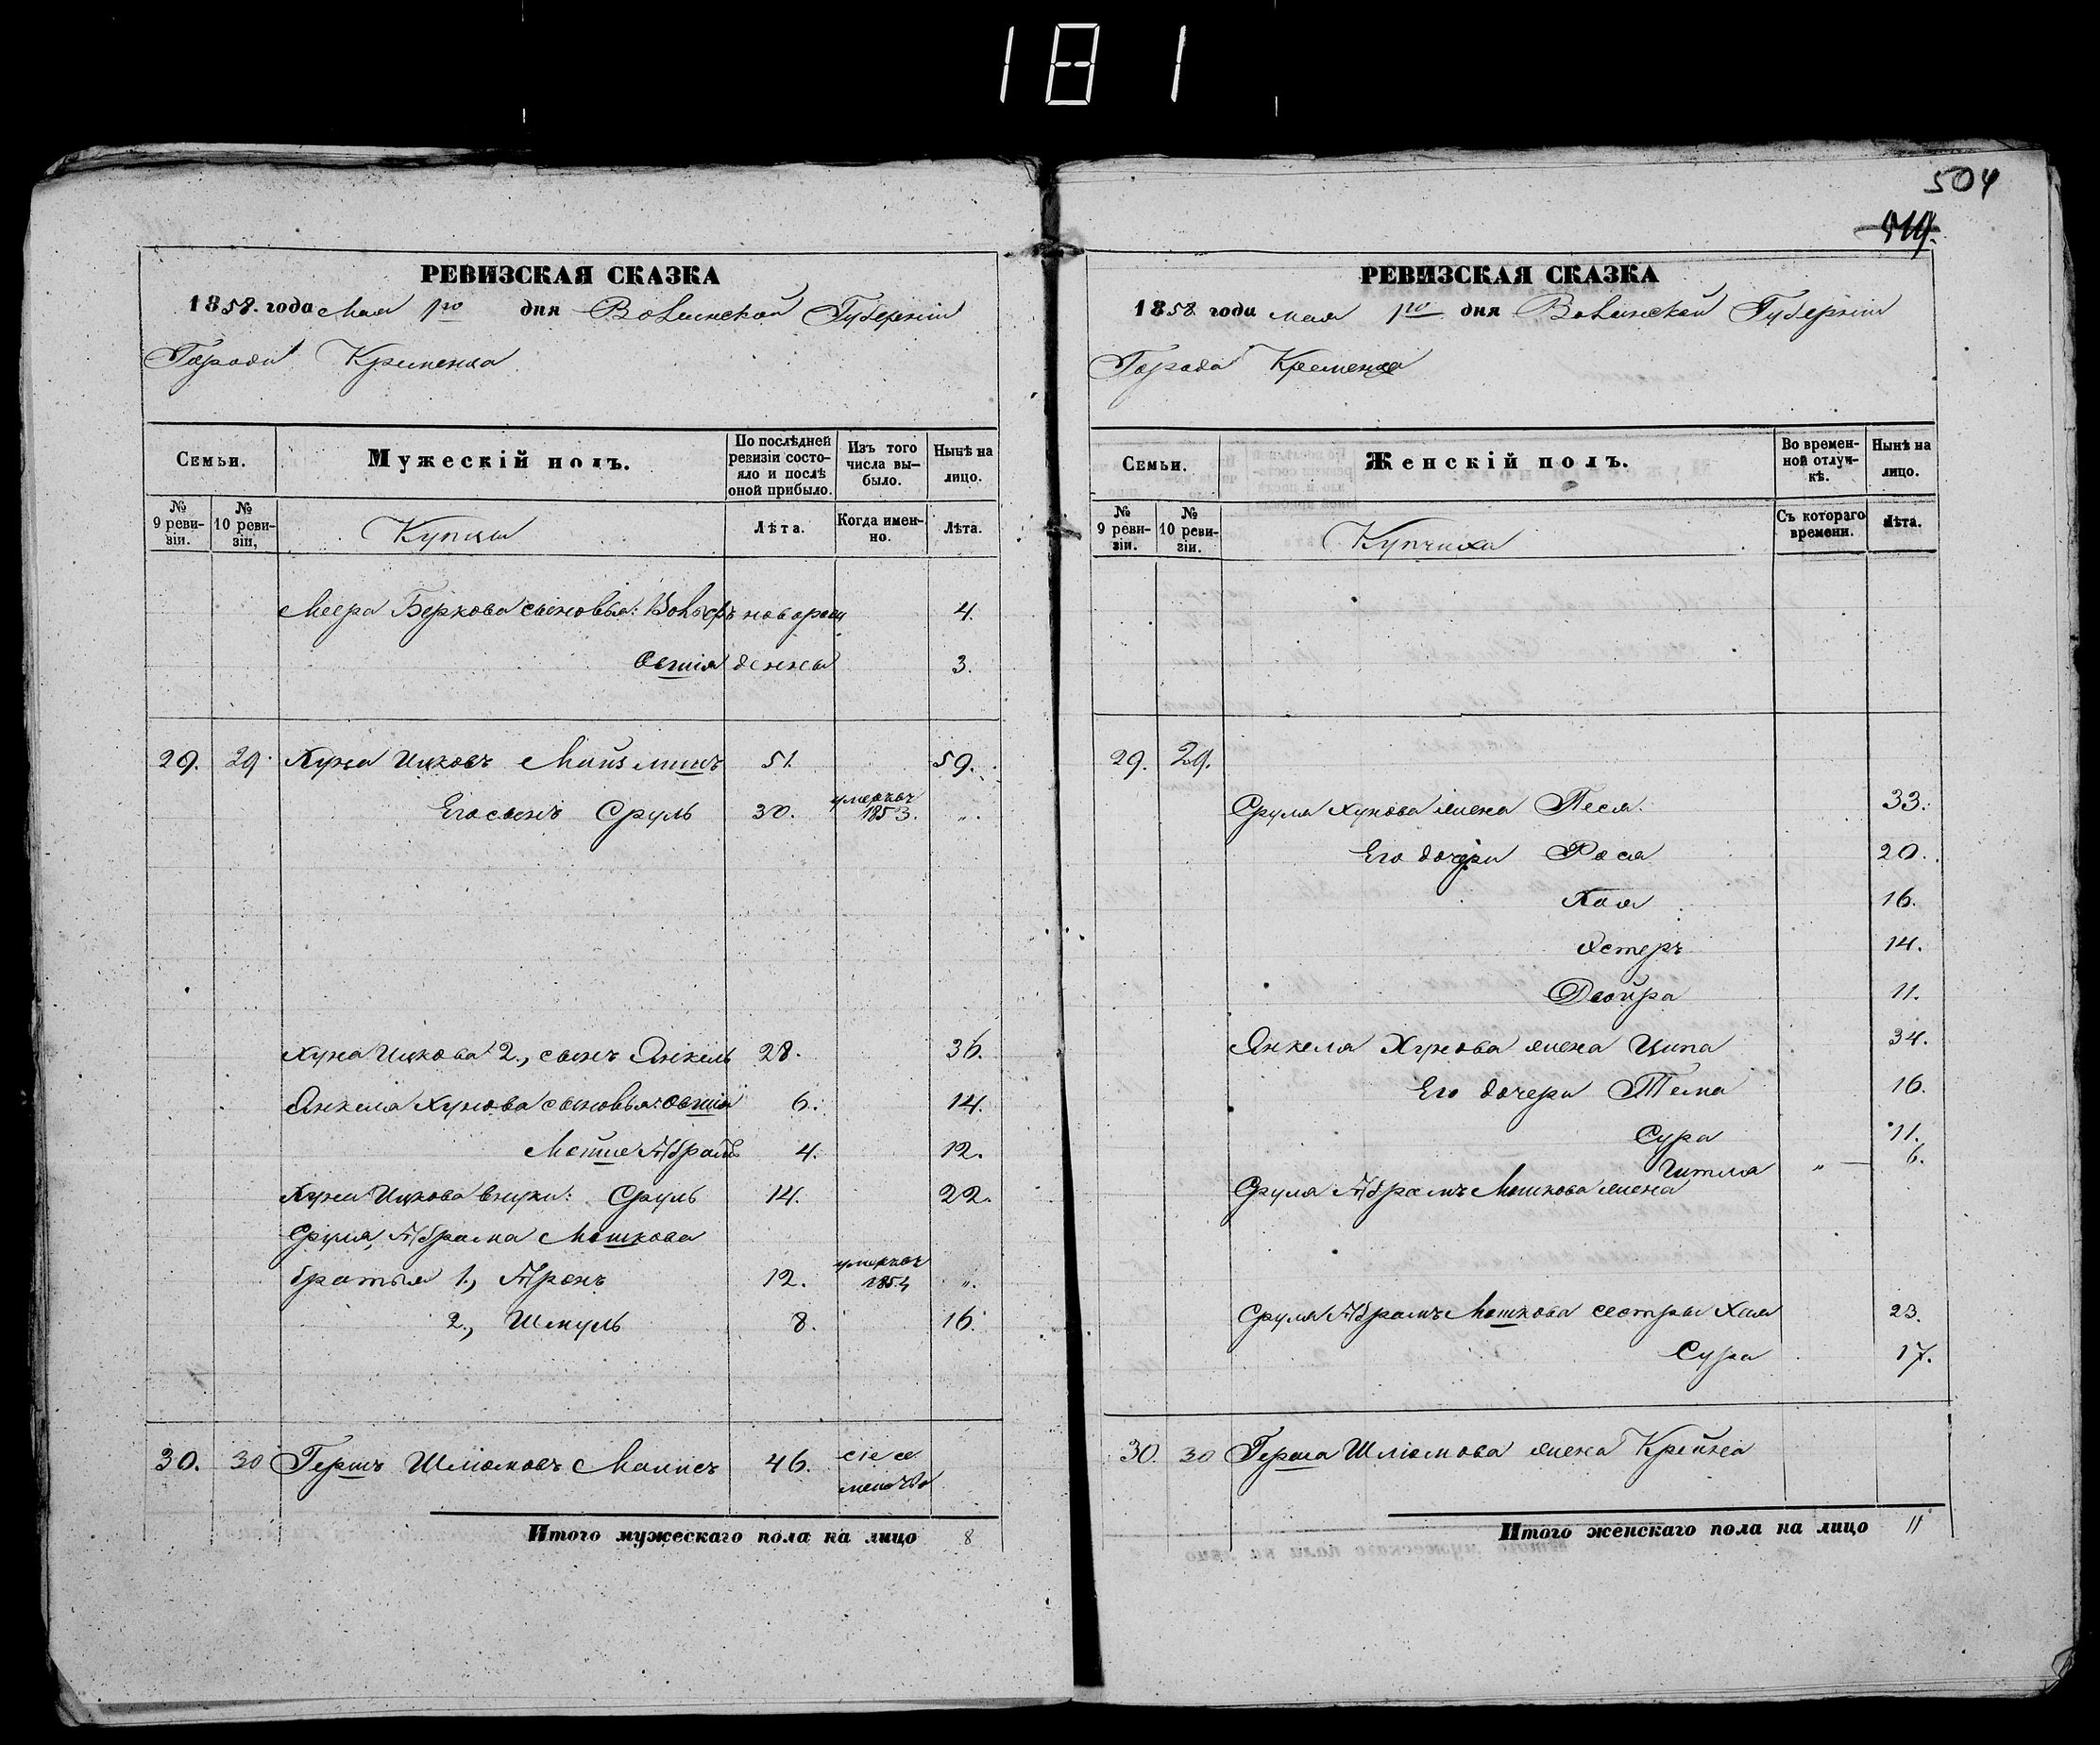 181
504
519.
РЕВИЗСКАЯ СКАЗКА
1858. года Мая 1го дня Волынской Губернiи
Города Кременца
Семьи. Мужескiй полъ. По послѣдней ревизiи состояло и послѣ оной прибыло. Изъ того числа выбыло. Нынѣ на лицо.
№ 9 ревизiи. № 10 ревизiи, Купцы Лѣта. Когда именно. Лѣта.
Меера Беркова сыновья: Вольфъ новорож 4.
Овшiя денны 3.
29. 29. Хуна Ицковъ 51. 59.
Его сынъ Сруль 30. умеръ въ 1853. „.
Хуна Ицкова 2., сынъ Янкель 28. 36.
Янкеля Хунова сыновья: Овшiя 6. 14.
Мошко Абрамъ 4. 12.
Хуна Ицкова внуки: Сруль 14. 22.
Сруля Абрама Мошкова
братья 1., Аронъ 12. умеръ въ 1854 „.
2., Шмуль 8. 16.
30. 30 Гершъ Шлiомовъ 46.
Итого мужескаго пола на лицо 8
РЕВИЗСКАЯ СКАЗКА
1858 года мая 1го дня Волынской Губернiи
Города Кременца
Семьи. Женскiй полъ. Во временной отлучкѣ. Нынѣ на лицо.
№ 9 ревизiи. № 10 ревизiи. Купчиха Съ котораго времени. Лѣта.
29. 29.
Сруля Хунова жена Песя. 33.
Его дочери Рося 20.
Хая 16.
Эстеръ 14.
Двойра 11.
Янкеля Хунова жена Ципа 34.
Его дочери Тема 16.
Сура 11.
Гитля „ 6.
Сруля Абрамъ Мошкова жена
Сруля Абрамъ Мошкова сестры Хая 23.
Сура 17.
30. 30 Герша Шлiомова жена Крейна
Итого женскаго пола на лицо 11